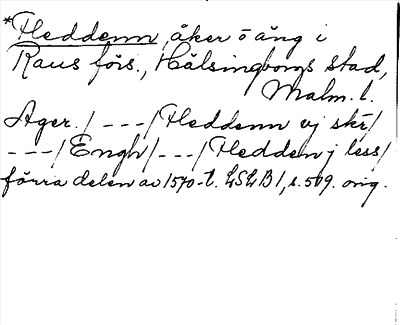 *Heddenn, åker o äng i
Raus förs., Hälsingborgs stad,
Malm. l.
Ager. / --- / Heddenn vj skr /
--- / Engh / --- / Hedden j less /
förra delen av 1570-t. LSLB 1, s. 509. orig.